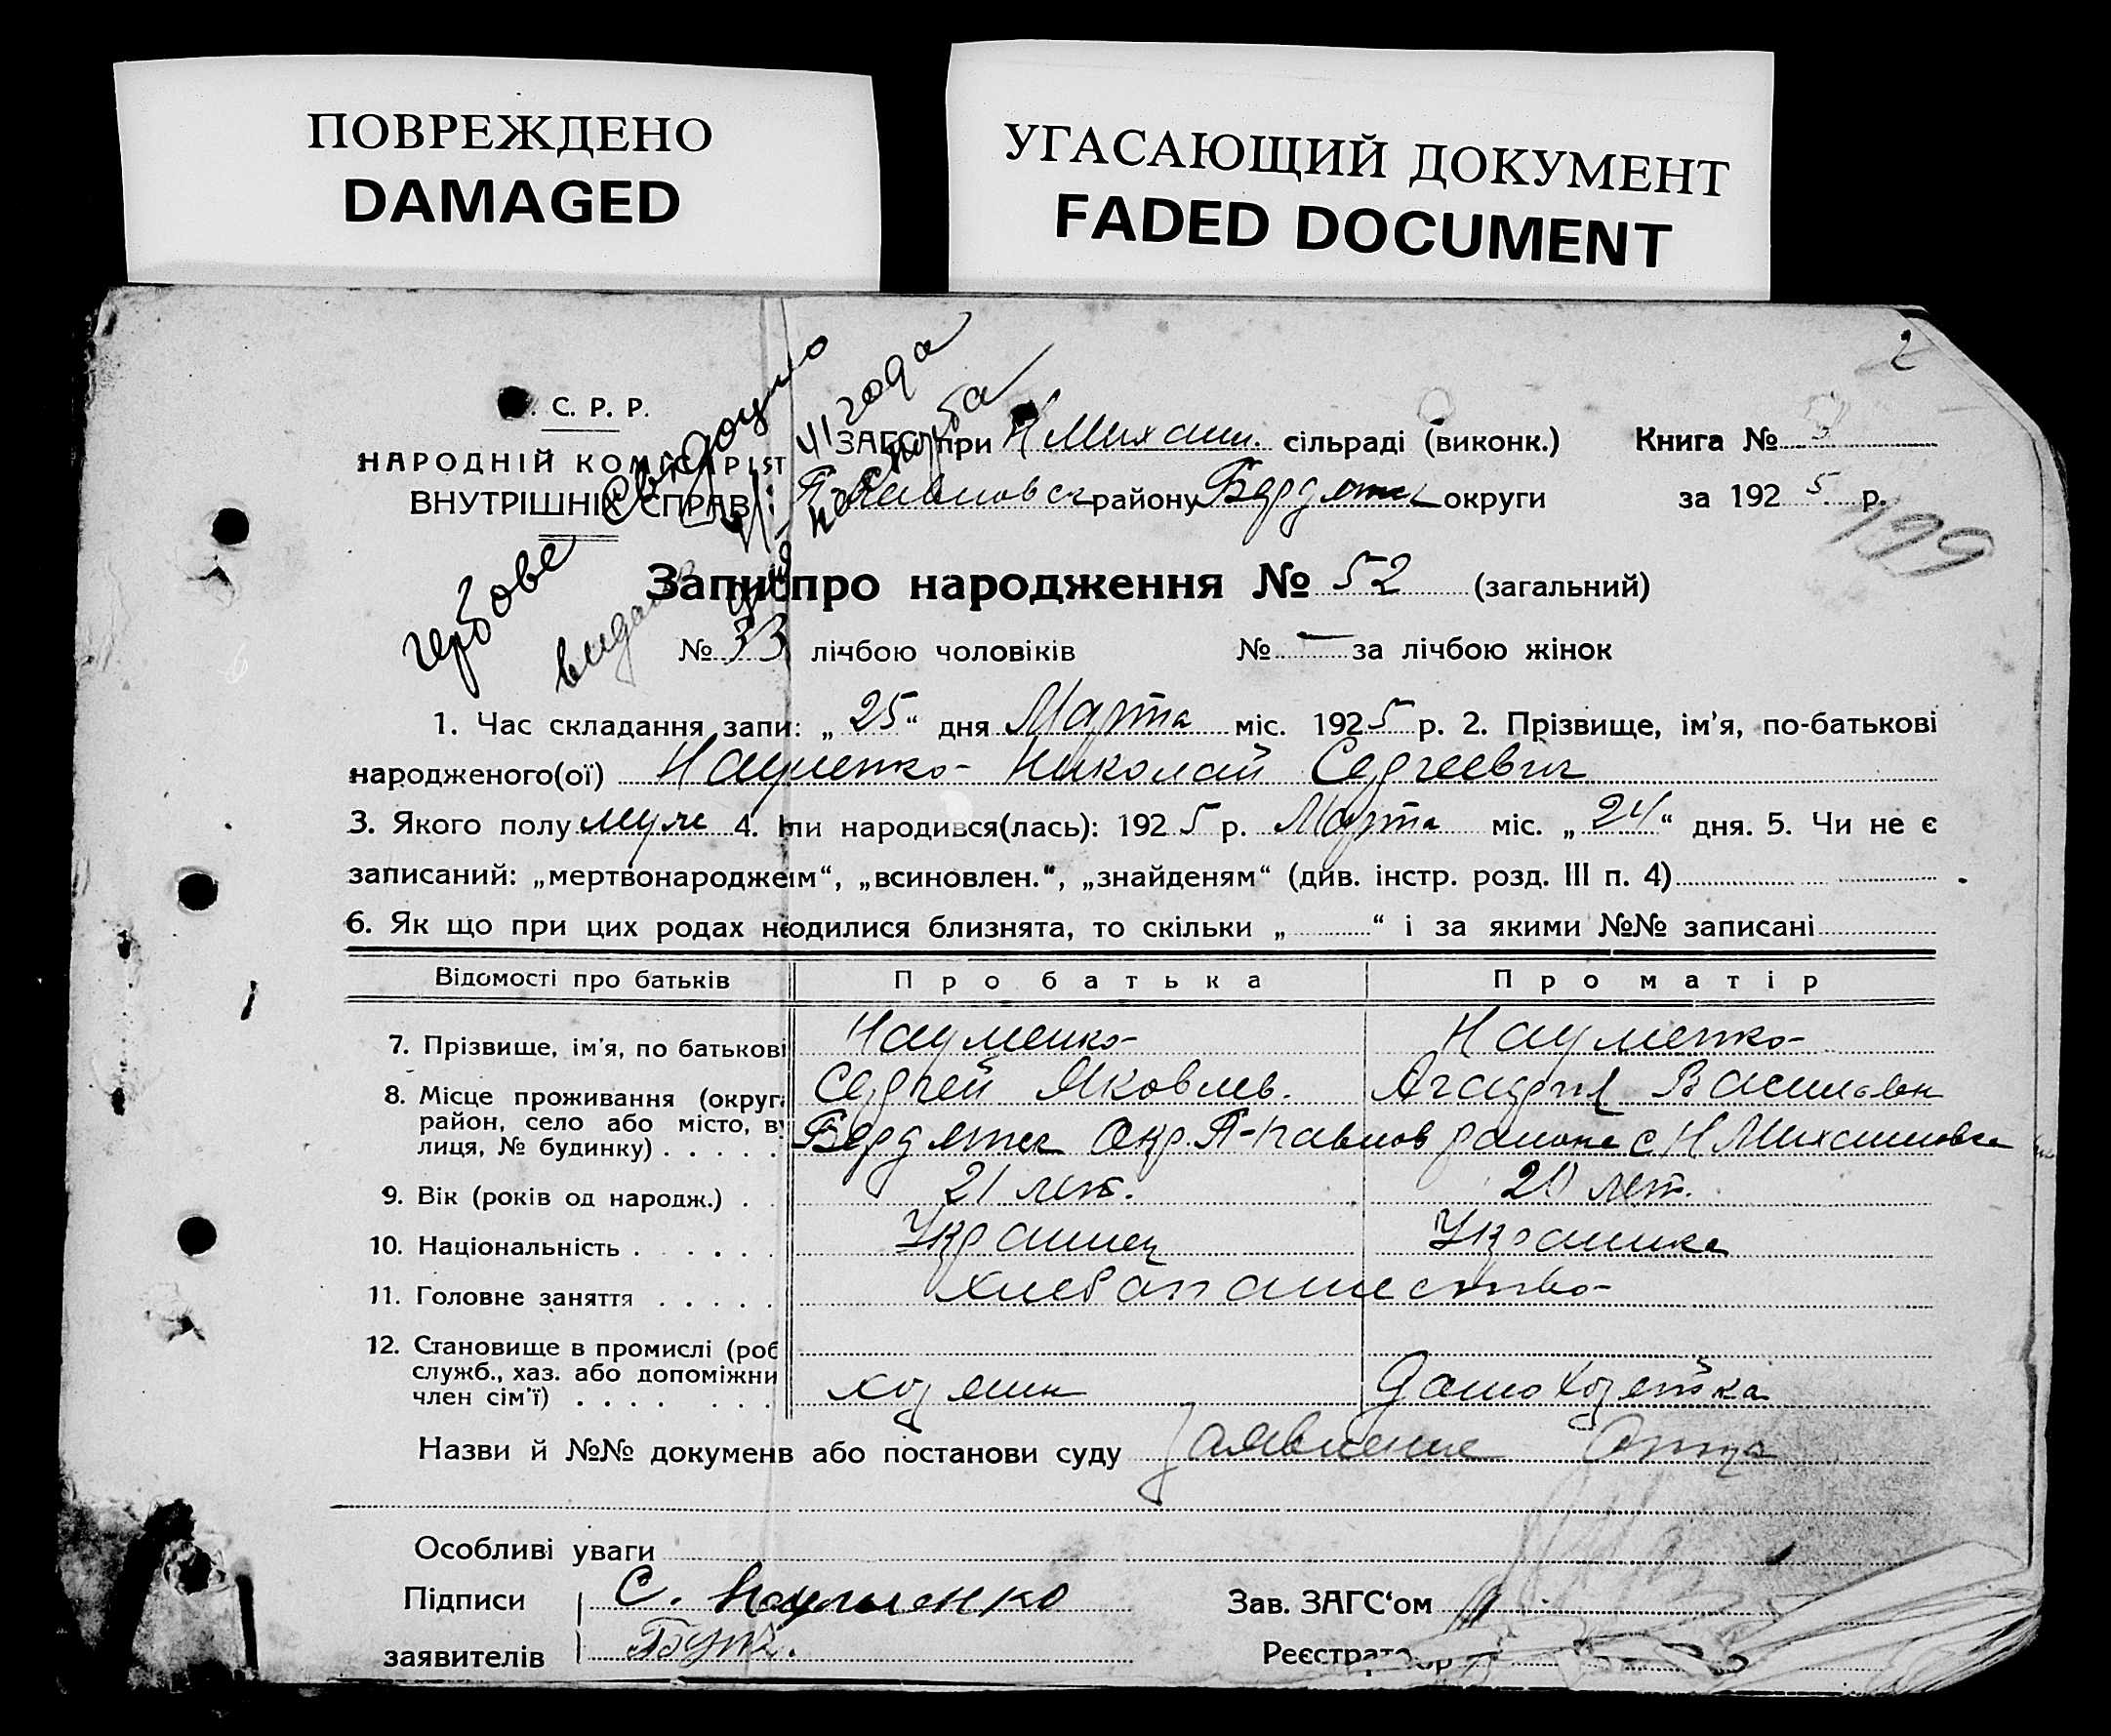 ПОВРЕЖДЕНО
DAMAGED
УГАСАЮЩИЙ ДОКУМЕНТ
FADED DOCUMENT
2
. С. Р. Р.
НАРОДНІЙ КОМІСАРІЯТ
ВНУТРІШНІХ СПРАВ
гербове свидоцтво
видано
41 года
ЗАГС при Н Михайл. сільраді (виконк.) Книга №
П-Павловск району Бердянск округи за 1925 р.
199
Запис про народження № 52 (загальний)
№ 33 лічбою чоловіків № — за лічбою жінок
1. Час складання запи: „ 25 “ дня Марта міс. 1925 р. 2. Прізвище, ім’я, по-батькові
народженого(ої) Науменко Николай Сергеевич
3. Якого полу муж 4. ли народився(лась): 1925 р. Марта міс. „ 24 “ дня. 5. Чи не є
записаний: „мертвонародженим“, „всиновлен.“, „знайденям“ (див. інстр. розд. III п. 4)
6. Як що при цих родах н одилися близнята, то скільки „ “ і за якими №№ записані
Відомості про батьків Про батька Про матір
7. Прізвище, ім’я, по батькові Науменко Науменко
Сергей Яковлев. Агафия Васильевн
8. Місце проживання (округ,
район, село або місто, ву
лиця, № будинку) . . . . . Бердянск Окр. П-Павлов района с Н Михайловка
9. Вік (років од народж.) . . 21 лет. 20 лет.
10. Національність . . . . . . Украинец Украинка
11. Головне заняття . . . . . хлебапашество
12. Становище в промислі (роб
служб., хаз. або допоміжни
член сім’ї) . . . . . . . хозяин домохозяйка
Назви й №№ докумен в або постанови суду Заявление Отца
Особливі уваги
Підписи С. Науменко Зав. ЗАГС‘ом
заявителів Реєстрато